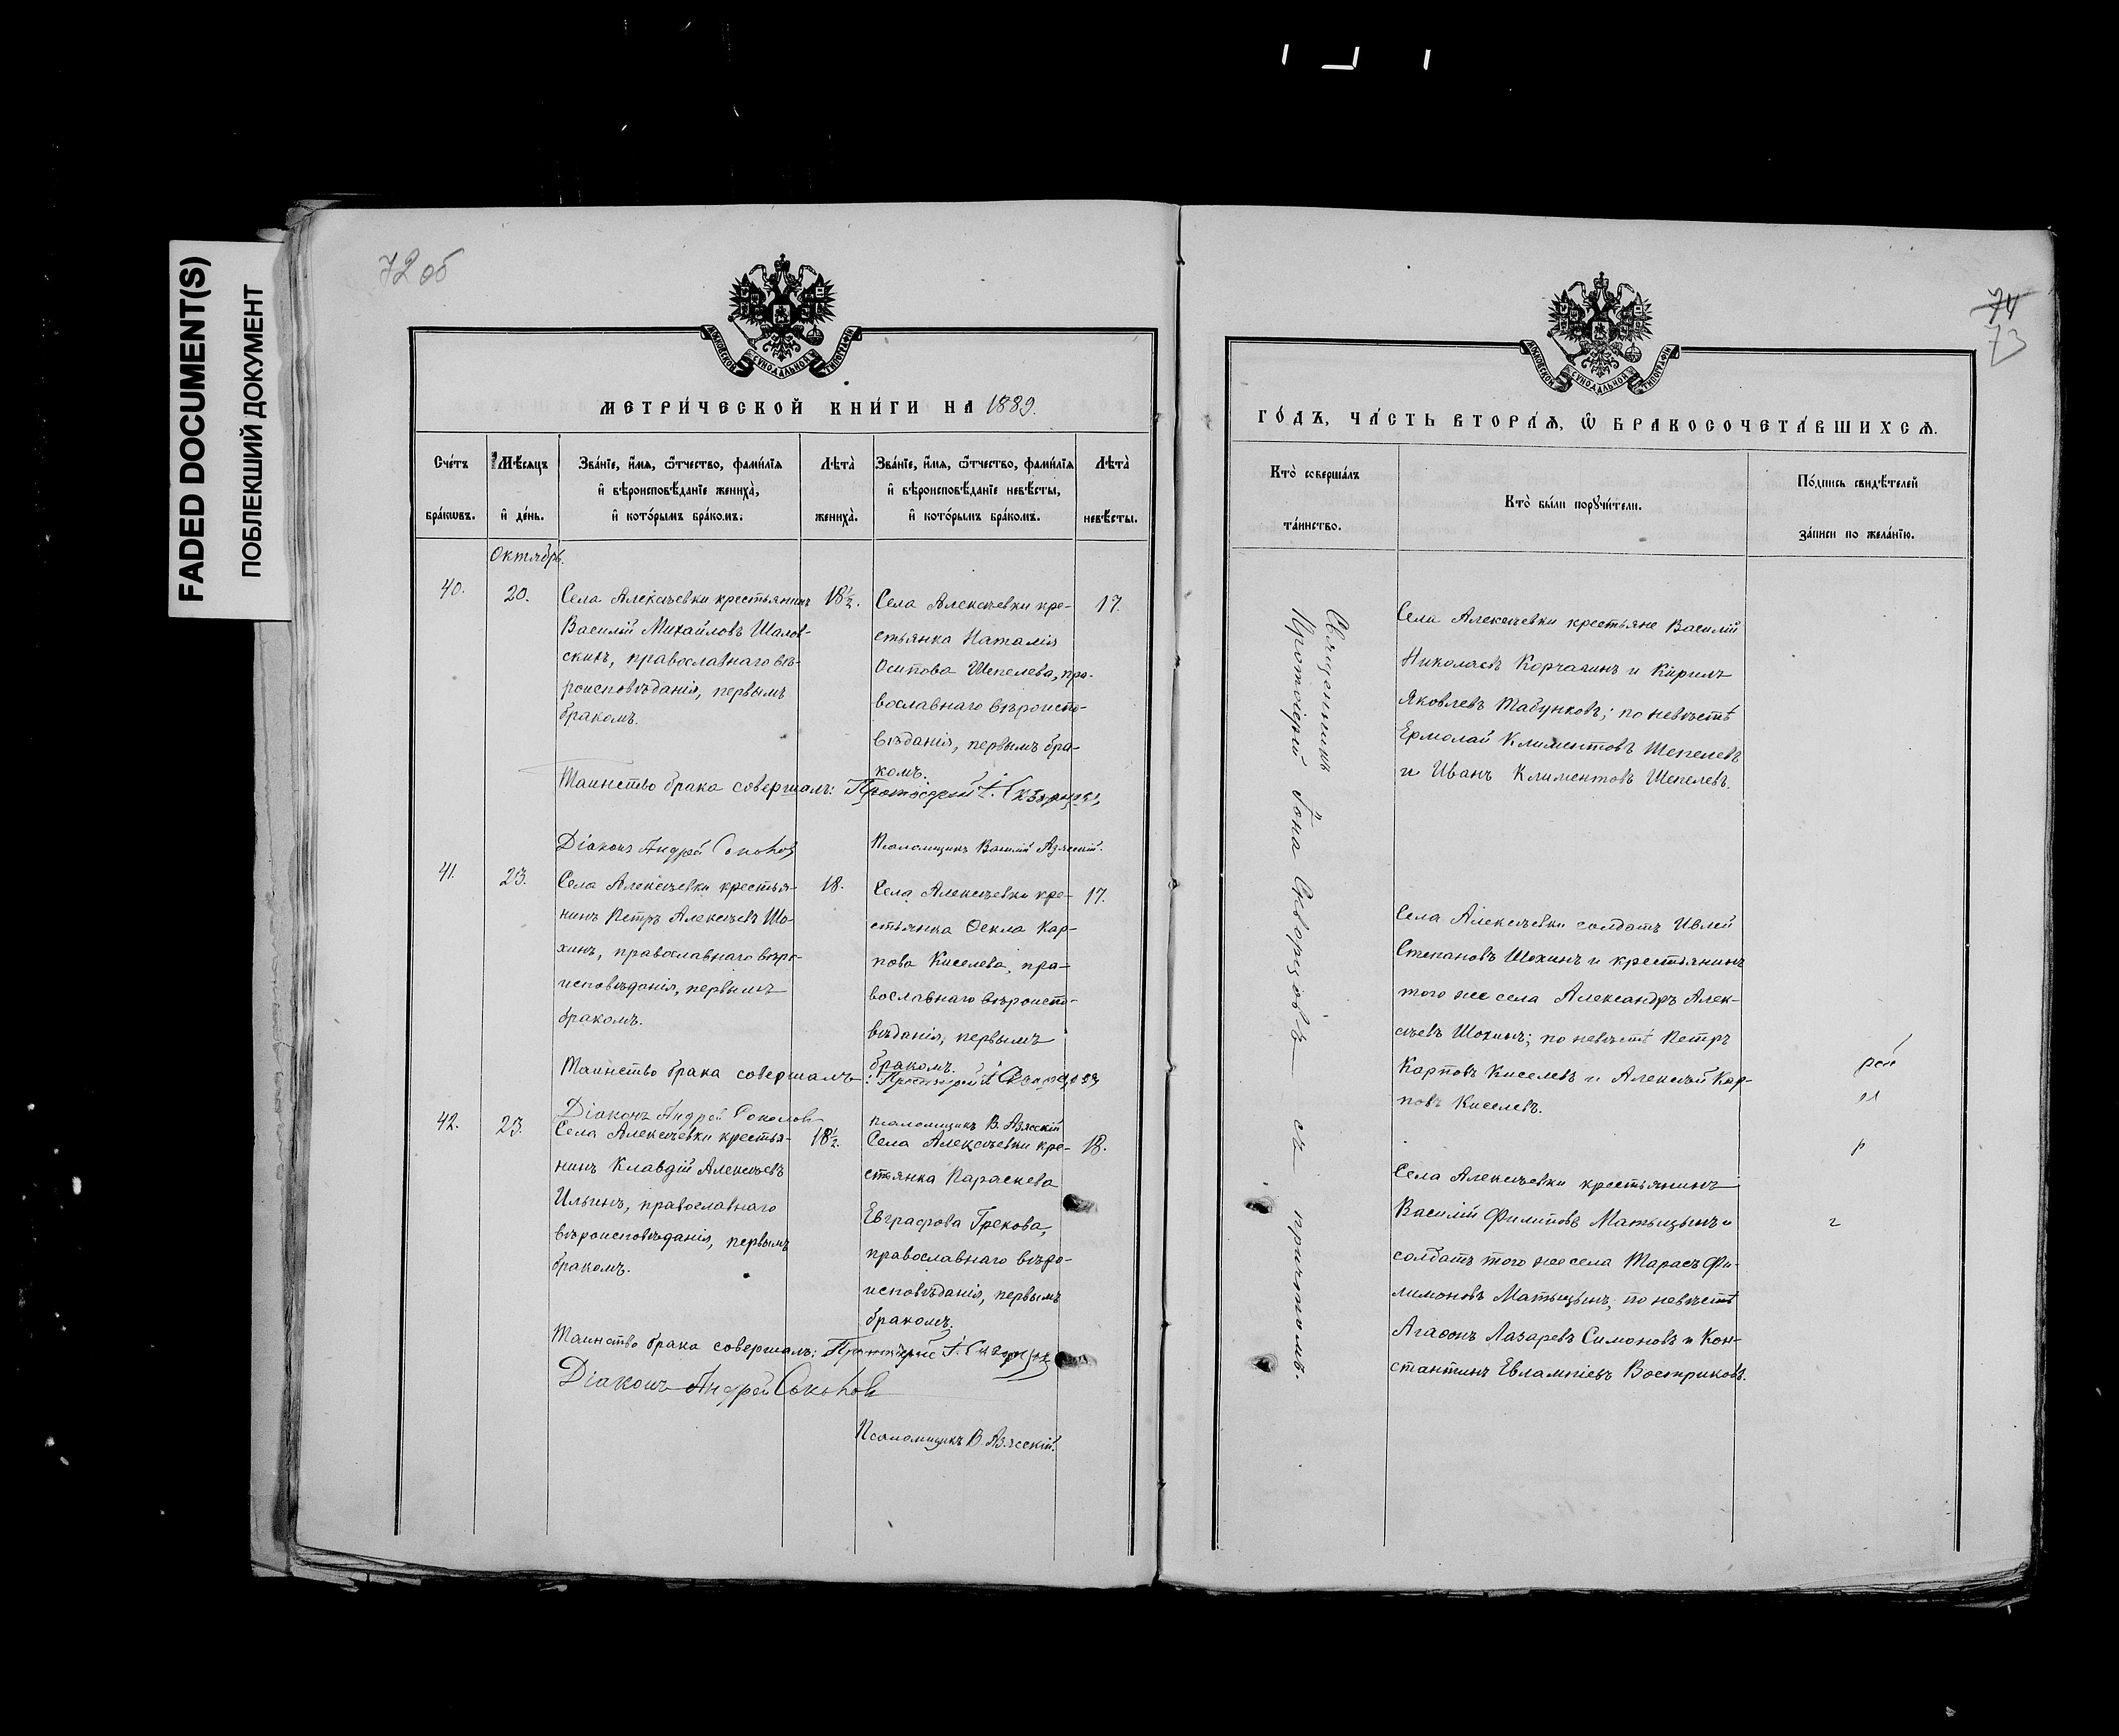 FADED DOCUMENT(S)
ПОБЛЕКШИЙ ДОКУМЕНТ
72 об
МОСКОВСКОЙ СУНОДАЛЬНОЙ ТИПОГРАФІИ
МЕТРИ́ЧЕСКОЙ КНИ́ГИ НА 1889.
Сче́тъ бра́кѡвъ.
Мѣ́сяцъ и҆ де́нь.
Зва́нїе, и҆́мя, ѻ҆́тчество, фами́лїя и҆ вѣроисповѣ́данїе жениха̀, и҆ кото́рымъ бра́комъ.
Лѣта̀ жениха̀.
Зва́нїе, и҆́мя, ѻ҆́тчество, фами́лїя и҆ вѣроисповѣ́данїе невѣ́сты, и҆ кото́рымъ бра́комъ.
Лѣта̀ невѣ́сты.
Октябрь.
40.
20.
Села Алексѣевки крестьянинъ
Василій Михайловъ Шалов-
скихъ, православнаго вѣ-
роисповѣданія, первымъ
бракомъ.
18½.
Села Алексѣевки кре-
стьянка Наталія
Осипова Шепелева, пра-
вославнаго вѣроиспо-
вѣданія, первымъ бра-
комъ.
17.
Таинство брака совершалъ: Протоіерей І. Скворцовъ
Діаконъ Андрей Соколовъ
Псаломщикъ Василій Азясскій.
41.
23.
Села Алексѣевки крестья-
нинъ Петръ Алексѣевъ Шо-
хинъ, православнаго вѣро-
исповѣданія, первымъ
бракомъ.
18.
Села Алексѣевки кре-
стьянка Ѳекла Кар-
пова Киселева, пра-
вославнаго вѣроиспо-
вѣданія, первымъ
бракомъ.
17.
Таинство брака совершалъ: Протоіерей І. Скворцовъ
Діаконъ Андрей Соколовъ
псаломщикъ В. Азясскій
42.
23.
Села Алексѣевки крестья-
нинъ Клавдій Алексѣевъ
Ильинъ, православнаго
вѣроисповѣданія, первымъ
бракомъ.
18½.
Села Алексѣевки кре-
стьянка Параскева
Евграфова Грекова,
православнаго вѣро-
исповѣданія, первымъ
бракомъ.
18.
Таинство брака совершалъ: Протоіерей І. Скворцовъ
Діаконъ Андрей Соколовъ
Псаломщикъ В. Азясскій.
74
73
МОСКОВСКОЙ СУНОДАЛЬНОЙ ТИПОГРАФІИ
ГО́ДЪ, ЧА́СТЬ ВТОРА́Я, Ѽ БРАКОСОЧЕТА́ВШИХСЯ.
Кто̀ соверша́лъ та́инство.
Кто̀ бы́ли поручи́тели.
По́дпись свидѣ́телей за́писи по жела́нїю.
Священникъ
Протоіерей Іона Скворцовъ съ причтомъ.
Села Алексѣевки крестьяне Василій
Николаевъ Корчагинъ и Кирилъ
Яковлевъ Табунковъ; по невѣстѣ
Ермолай Климентовъ Шепелевъ
и Иванъ Климентовъ Шепелевъ.
Села Алексѣевки солдатъ Ивлей
Степановъ Шохинъ и крестьянинъ
того же села Александръ Алек-
сѣевъ Шохинъ; по невѣстѣ Петръ
Карповъ Киселевъ и Алексѣй Кар-
повъ Киселевъ.
Села Алексѣевки крестьянинъ
Василій Филиповъ Матыцынъ и
солдатъ того же села Тарасъ Фи-
лимоновъ Матыцынъ; по невѣстѣ
Агаѳонъ Лазаревъ Симоновъ и Кон-
стантинъ Евлампіевъ Востриковъ.